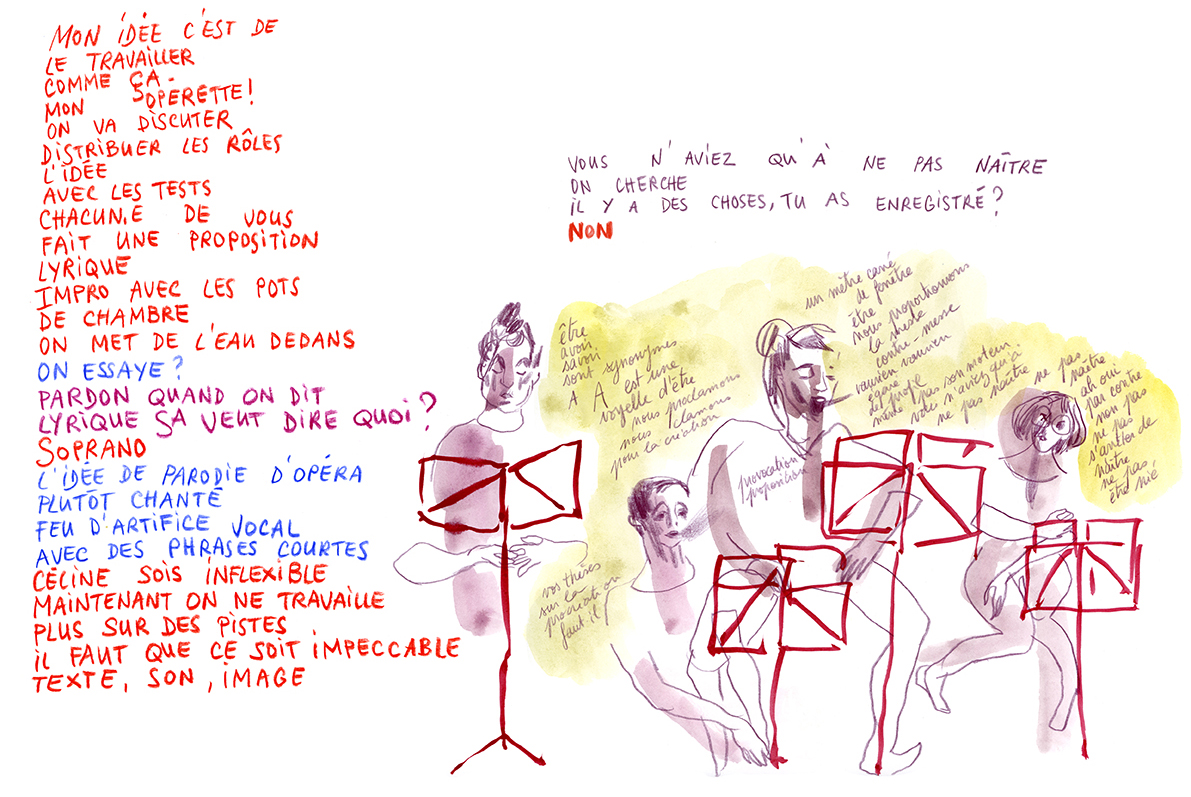 MON IDÉE C'EST DE
LE TRAVAILLER
COMME ÇA.
MON SOPERETTE!
ON VA DISCUTER
DISTRIBUER LES RÔLES
L'IDÉE
AVEC LES TESTS
CHACUN.E DE VOUS
FAIT UNE PROPOSITION
LYRIQUE
IMPRO AVEC LES POTS
DE CHAMBRE
ON MET DE L'EAU DEDANS
ON ESSAYE?
PARDON QUAND ON DIT
LYRIQUE ÇA VEUT DIRE QUOI?
SOPRANO
L'IDÉE DE PARODIE D'OPÉRA
PLUTOT CHANTÉ
FEU D'ARTIFICE VOCAL
AVEC DES PHRASES COURTES
CÉLINE SOIS INFLEXIBLE
MAINTENANT ON NE TRAVAILLE
PLUS SUR DES PISTES
IL FAUT QUE CE SOIT IMPECCABLE
TEXTE, SON, IMAGE
VOUS N'AVIEZ QU'À NE PAS NAÎTRE
ON CHERCHE
IL Y A DES CHOSES, TU AS ENREGISTRÉ?
NON
être
avoir
savoir
sont synonymes
A est une
voyelle d'être
nous proclamons
nous clamons
pour la création
vos thèses
sur la
procréation
faut il
provocation
proposition
un mètre carré
de fenêtre
être
nous proportionnons
la messe
contre-messe
vaurien vaurien
égare pas son moteur
de profil
même
vous n'aviez qu'à
ne pas naître
ne pas
naître
ah oui
par contre
non pas
ne pas
s'arrêter de
naître
ne pas
être nié